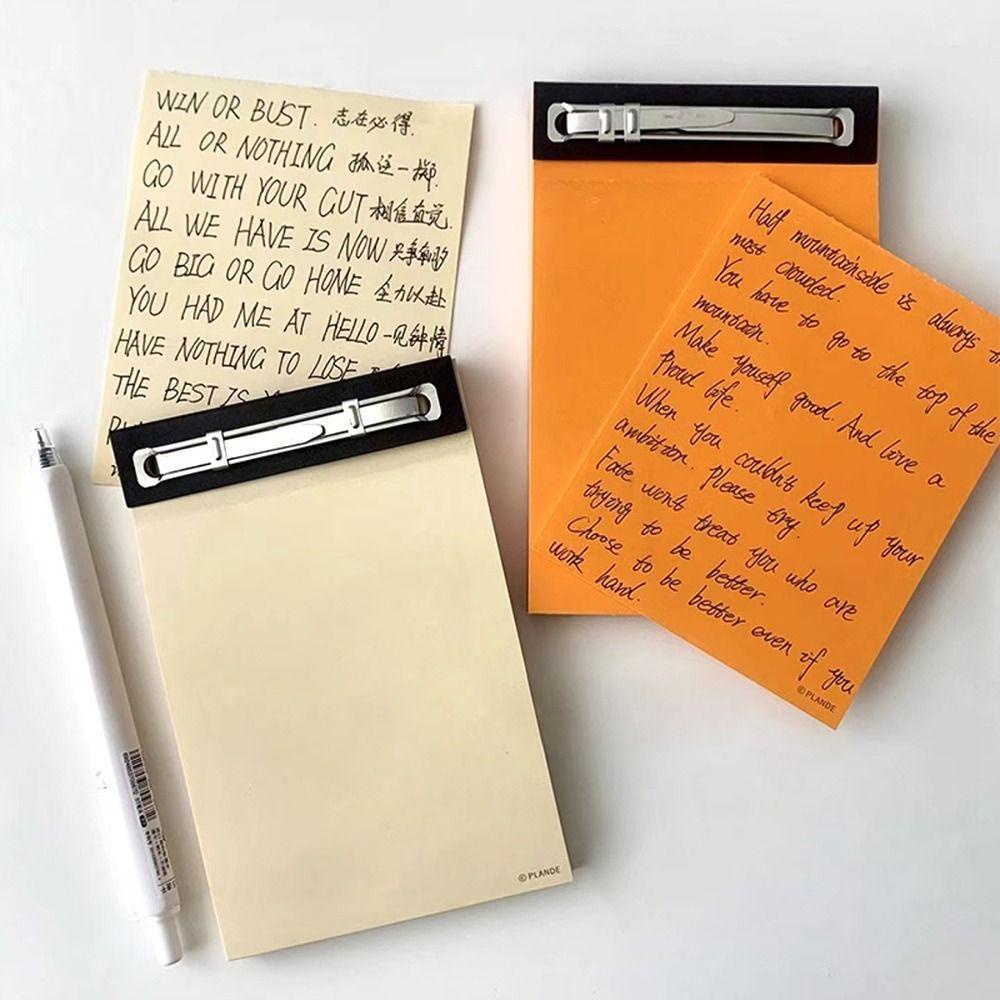 WIN OR BUST. 志在必得.
ALL OR NOTHING 孤注一掷.
GO WITH YOUR GUT 相信直觉.
ALL WE HAVE IS NOW 只争朝夕
GO BIG OR GO HOME 全力以赴
YOU HAD ME AT HELLO 一见钟情
HAVE NOTHING TO LOSE
THE BEST IS
© PLANDE
Half mountainside is always
most crowded.
You have to go to the top of the
mountain.
Make youself good. And love a
Proud life.
When you couldn't keep up your
ambition. Please try.
Fate won't treat you who are
trying to be better.
Choose to be better even if you
work hard.
© PLANDE